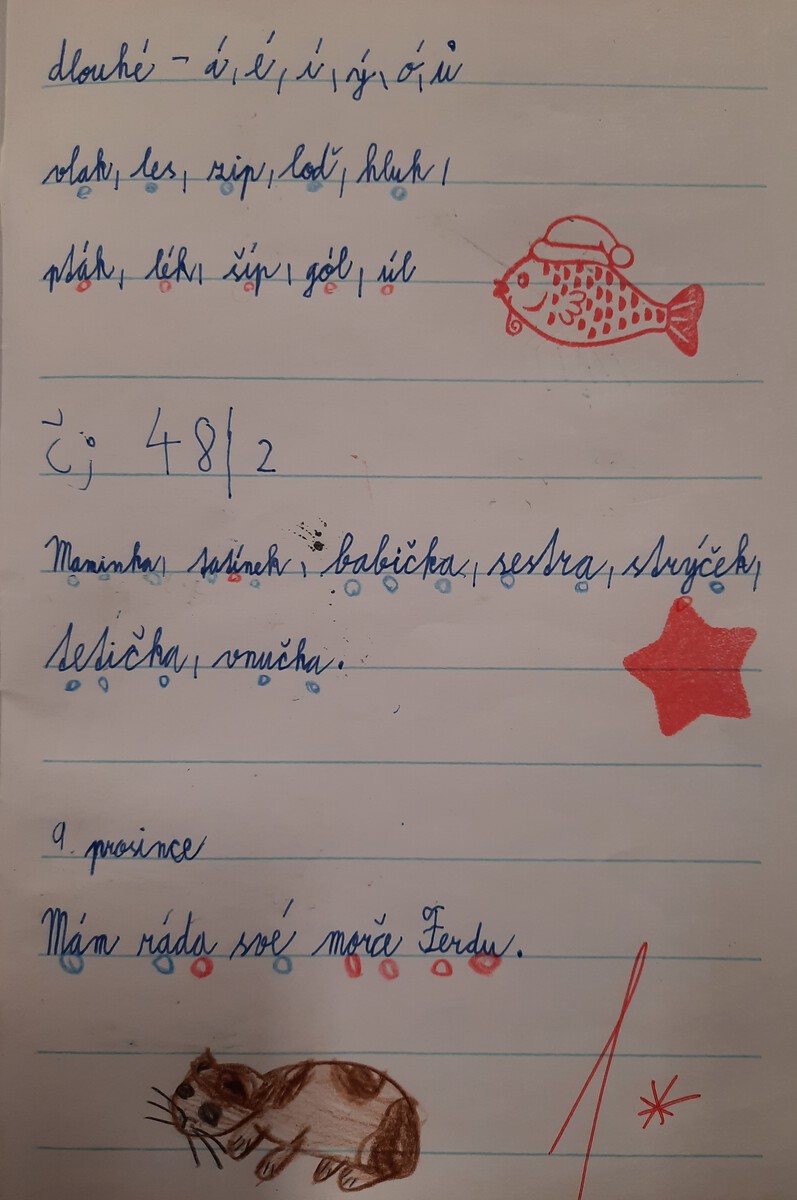 dlouhé - á, é, í, ý, ó, ů
vlak, les, zip, loď, hluk,
pták, lék, šíp, gól, úl
čj 48/2
Maminka, tatínek, babička, sestra, strýček,
tetička, vnučka.
9. prosince
Mám ráda své morče Ferdu.
1*